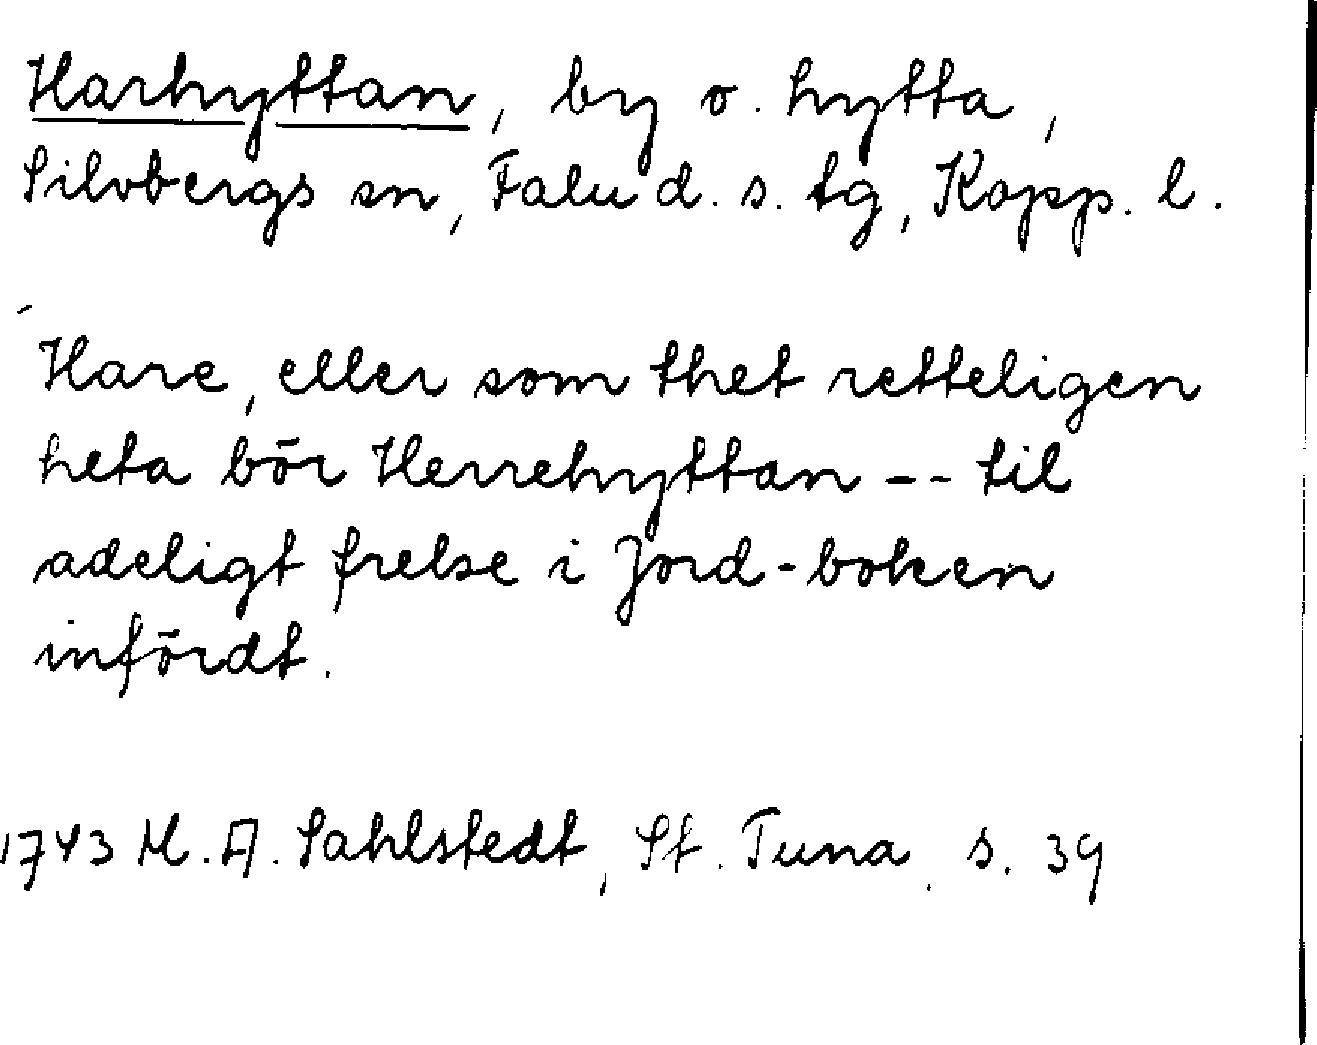 Harhyttan, by o. hytta,
Silvbergs sn, Falu d. s. tg, Kopp. l.
Hare, eller som thet retteligen
heta bör Herrehyttan -- til
adeligt frelse i Jord-boken
infördt.
1743 M. A. Sahlstedt, St. Tuna. s. 39